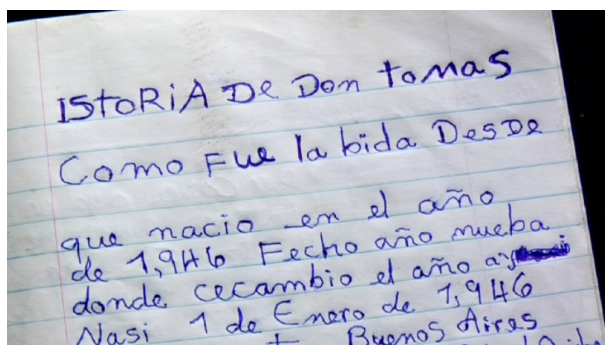 IStoRiA De Don tomas
Como Fue la bida DesDe
que nacio en el año
de 1,946 Fecho año nueba
donde cecambio el año
Nasi 1 de Enero de 1,946
Buenos Aires